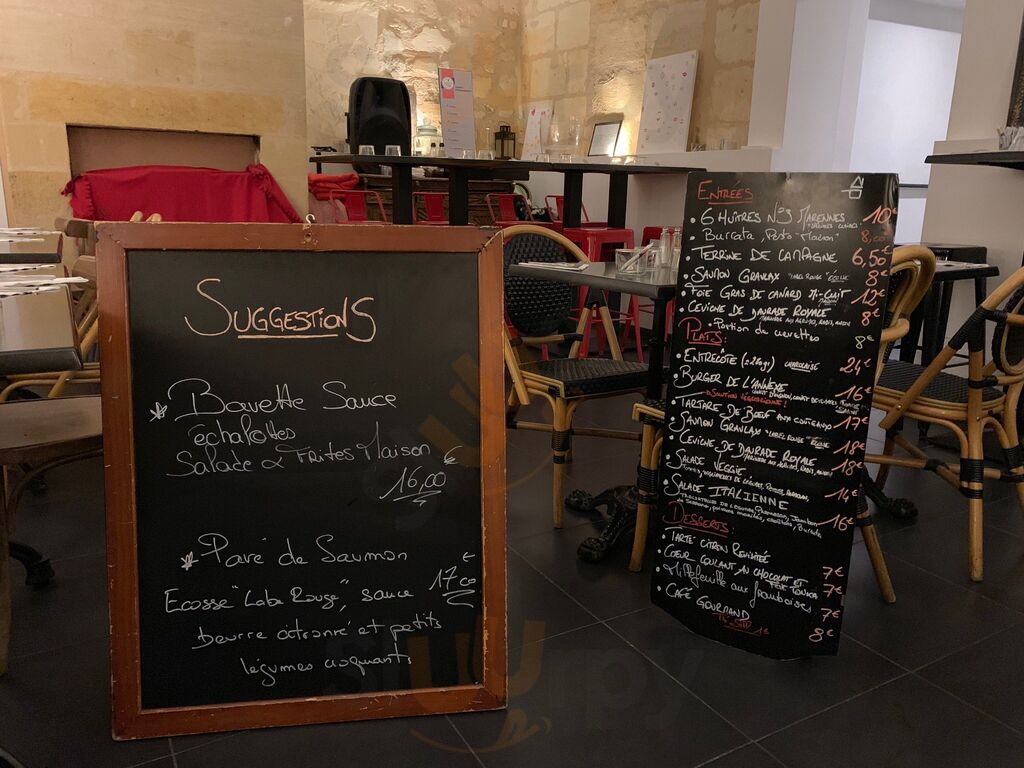 SUGGESTIONS
* Bavette Sauce
échalottes
Salade & Frites Maison
16,00 €
* Pavé de Saumon
Ecosse "Labe Rouge", sauce 17,00 €
beurre citronné et petits
légumes croquants
ENTRÉES
• 6 HUÎTRES N°3 MARENNES 10€
• Burrata, Pesto Maison 8,00
• TERRINE DE CAMPAGNE 6,50€
• SAUMON GRAVLAX "LABEL ROUGE" ECOSSE 8€
• FOIE GRAS DE CANARD MI-CUIT 12€
• CEVICHE DE DAURADE ROYALE 8€
• Portion de crevettes 8€
PLATS:
• ENTRECÔTE CHAROLAISE 24€
• BURGER DE L'ANNEXE 16€
• TARTARE DE BŒUF AUX COUTEAUX 17€
• SAUMON GRAVLAX "LABEL ROUGE" ECOSSE 18€
• CEVICHE DE DAURADE ROYALE 18€
• SALADE VEGGIE 14€
• SALADE ITALIENNE 16€
DESSERTS
• TARTE CITRON REVISITÉE 7€
• COEUR COULANT AU CHOCOLAT ET FÈVE TONKA 7€
• Millefeuille aux framboises 7€
• CAFÉ GOURMAND 8€